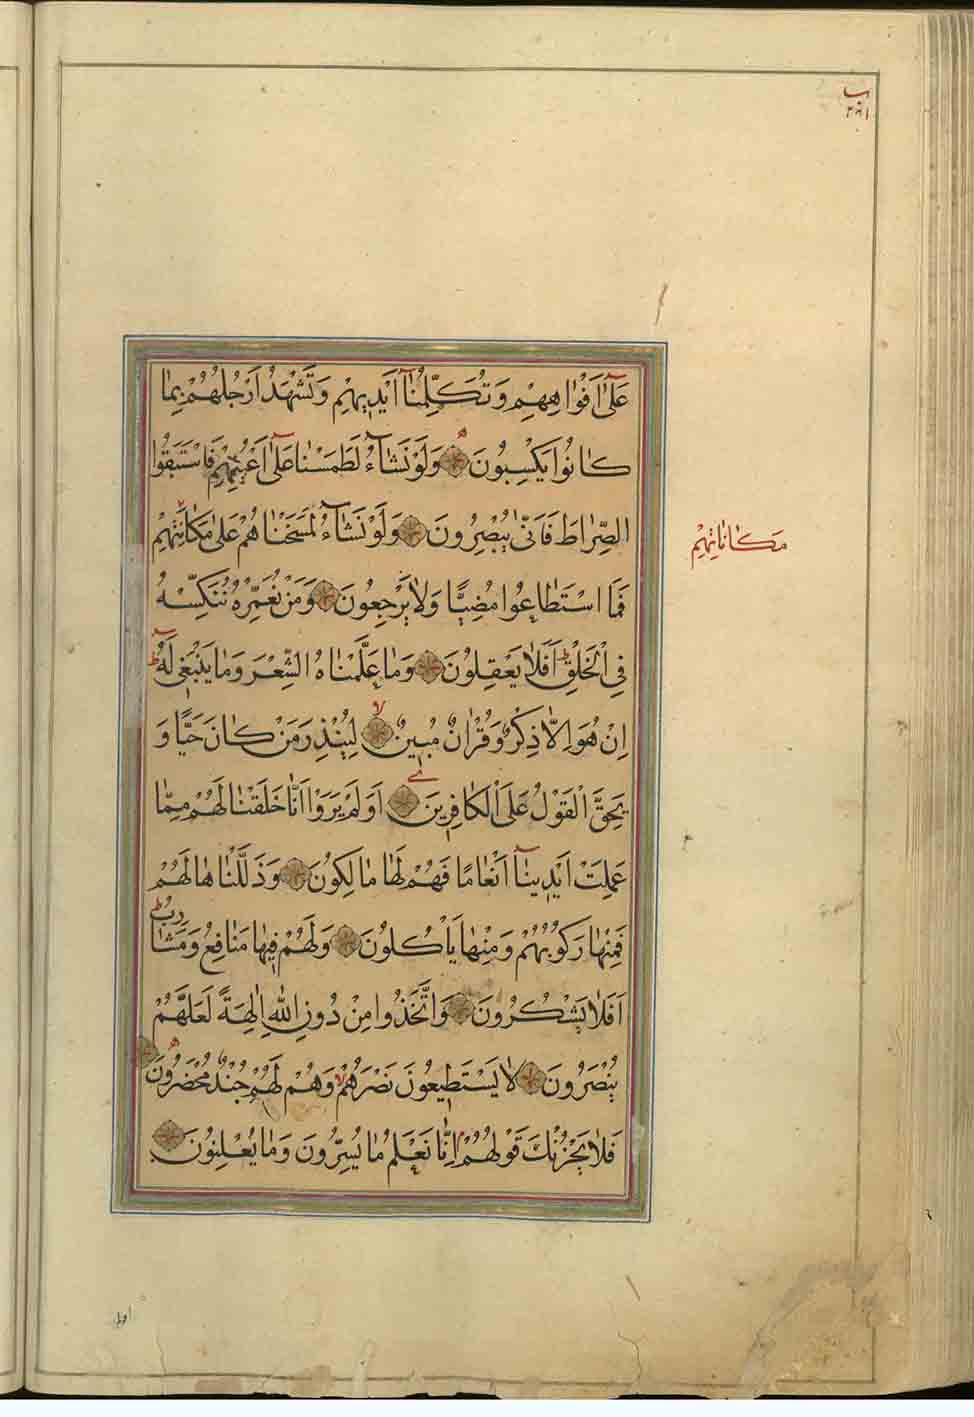 عَلٰٓى اَفْوَاهِهِمْ وَتُكَلِّمُنَآ اَيْدِيهِمْ وَتَشْهَدُ اَرْجُلُهُمْ بِمَا
كَانُوا يَكْسِبُونَ وَلَوْ نَشَآءُ لَطَمَسْنَا عَلٰٓى اَعْيُنِهِمْ فَاسْتَبَقُوا
الصِّرَاطَ فَاَنّٰى يُبْصِرُونَ وَلَوْ نَشَآءُ لَمَسَخْنَاهُمْ عَلٰى مَكَانَتِهِمْ
مَكَانَاتِهِمْ
فَمَا اسْتَطَاعُوا مُضِيًّا وَلَا يَرْجِعُونَ وَمَنْ نُعَمِّرْهُ نُنَكِّسْهُ
فِي الْخَلْقِ ط اَفَلَا يَعْقِلُونَ وَمَا عَلَّمْنَاهُ الشِّعْرَ وَمَا يَنْبَغِي لَهُٓ ط
اِنْ هُوَ اِلَّا ذِكْرٌ وَقُرْاٰنٌ مُبِينٌ لا لِيُنْذِرَ مَنْ كَانَ حَيًّا وَ
يَحِقَّ الْقَوْلُ عَلَى الْكَافِرِينَ اَوَلَمْ يَرَوْا اَنَّا خَلَقْنَا لَهُمْ مِمَّا
عَمِلَتْ اَيْدِينَآ اَنْعَامًا فَهُمْ لَهَا مَالِكُونَ وَذَلَّلْنَاهَا لَهُمْ
فَمِنْهَا رَكُوبُهُمْ وَمِنْهَا يَاْكُلُونَ وَلَهُمْ فِيهَا مَنَافِعُ وَمَشَارِبُ ط
اَفَلَا يَشْكُرُونَ وَاتَّخَذُوا مِنْ دُونِ اللّٰهِ اٰلِهَةً لَعَلَّهُمْ
يُنْصَرُونَ لَا يَسْتَطِيعُونَ نَصْرَهُمْ لا وَهُمْ لَهُمْ جُنْدٌ مُحْضَرُونَ
فَلَا يَحْزُنْكَ قَوْلُهُمْ اِنَّا نَعْلَمُ مَا يُسِرُّونَ وَمَا يُعْلِنُونَ